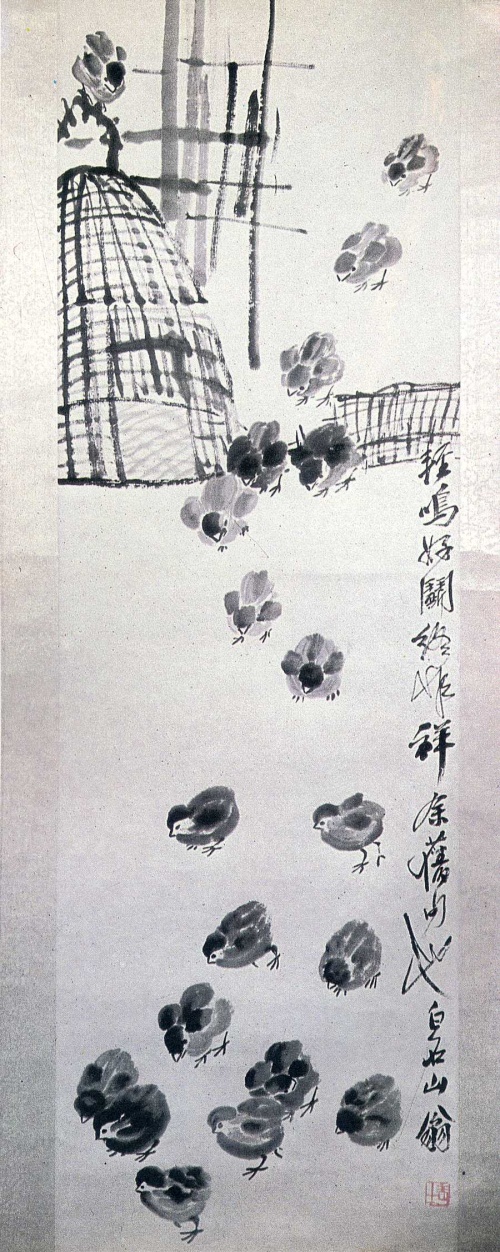 輕鳴好鬪終非祥余舊句也白石山翁